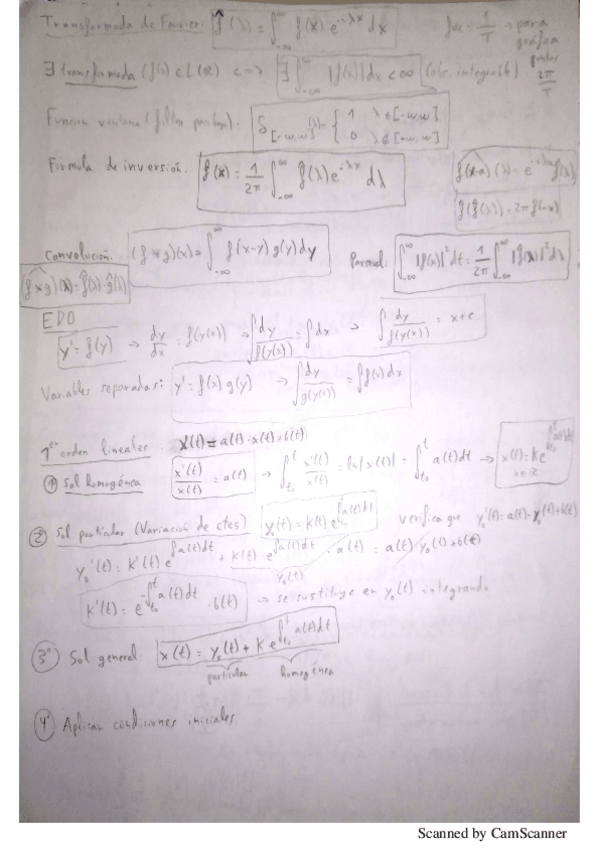 Transformada de Fourier: f̂(λ) = ∫_{-∞}^{∞} f(x) e^{-iλx} dx
frec = 1/T → para gráfica puntos 2π/T
∃ transformada (f(x) ∈ L(R)) <=> ∃ ∫_{-∞}^{∞} |f(x)| dx < ∞ (abs. integrable)
Función ventana (filtro paso bajo). δ_{[-w,w]}(λ) = { 1 λ∈[-w,w]
0 λ∉[-w,w]
Fórmula de inversión. f(x) = 1/2π ∫_{-∞}^{∞} f̂(λ) e^{-iλx} dλ
f(x-a)^(λ) = e^{-iλa} f̂(λ)
f̂(f̂(λ)) = 2π f(-x)
Convolución: (f*g)(x) = ∫_{-∞}^{∞} f(x-y) g(y) dy
Parseval: ∫_{-∞}^{∞} |f(x)|² dt = 1/2π ∫_{-∞}^{∞} |f̂(λ)|² dλ
(f*g)^(λ) = f̂(λ)·ĝ(λ)
EDO
y' = f(y) → dy/dx = f(y(x)) → ∫ dy/f(y(x)) = ∫ dx → ∫ dy/f(y(x)) = x+c
Variables separadas: y' = f(x) g(y) → ∫ dy/g(y(x)) = ∫ f(x) dx
1er orden lineales: x'(t) = a(t)·x(t)+b(t)
① Sol homogénea x'(t)/x(t) = a(t) → ∫_{t₀}^{t} x'(t)/x(t) = ln|x(t)| = ∫_{t₀}^{t} a(t)dt → x(t) = K e^{∫_{t₀}^{t} a(t)dt}
K∈R
② Sol particular (Variación de ctes) y₀(t) = K(t) e^{∫_{t₀}^{t} a(t)dt} verifica que y₀'(t) = a(t)·y₀(t)+b(t)
y₀'(t) = K'(t) e^{∫a(t)dt} + K(t) e^{∫a(t)dt}·a(t) = a(t) y₀(t)+b(t)
y₀(t)
K'(t) = e^{-∫_{t₀}^{t} a(t)dt}·b(t) → se sustituye en y₀(t) integrando
③ Sol general x(t) = y₀(t) + K e^{∫_{t₀}^{t} a(t)dt}
particular homogénea
4º Aplicar condiciones iniciales
Scanned by CamScanner